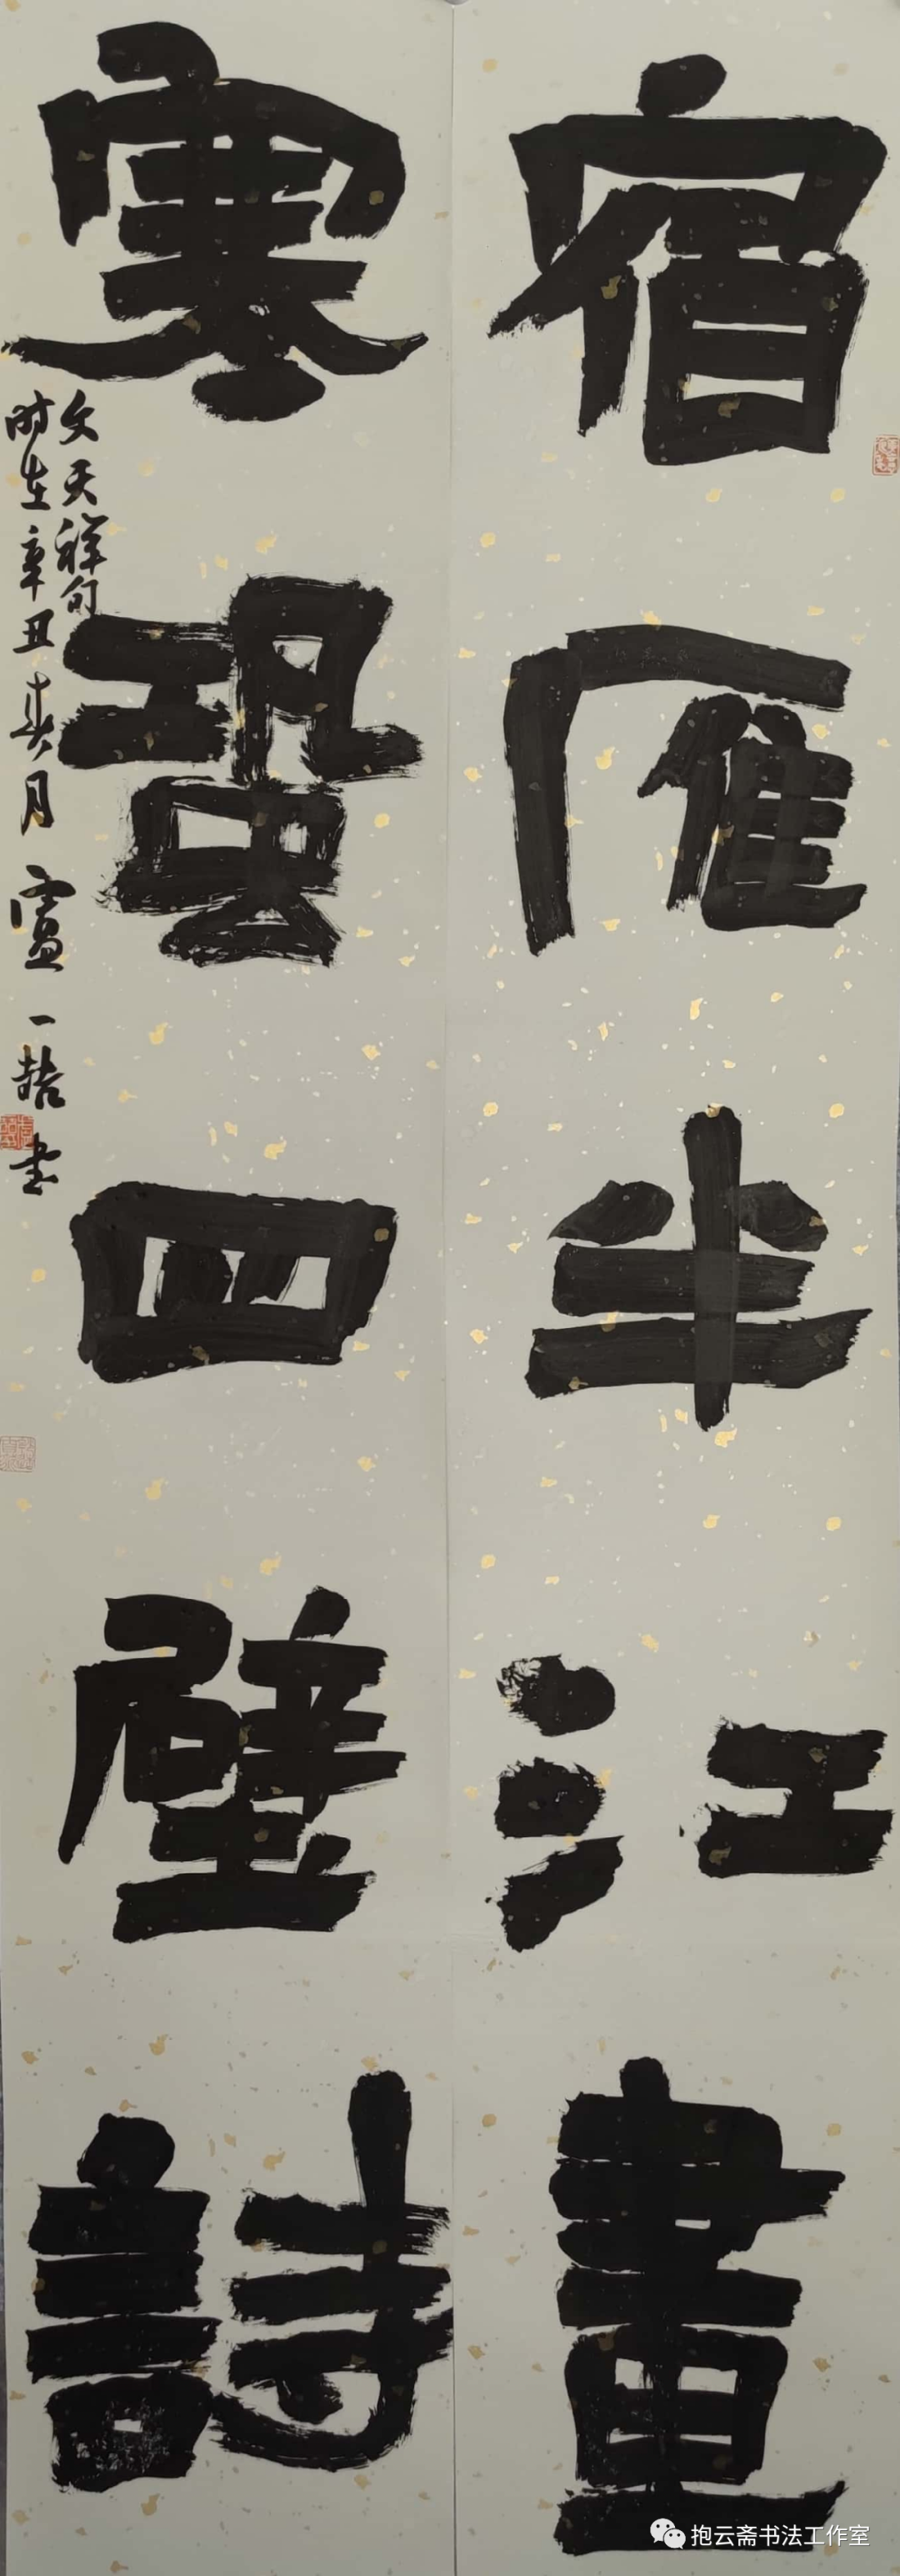 宿雁半江畫
寒蛩四壁詩
文天祥句
时在辛丑春月 盧一喆书
抱云斋书法工作室